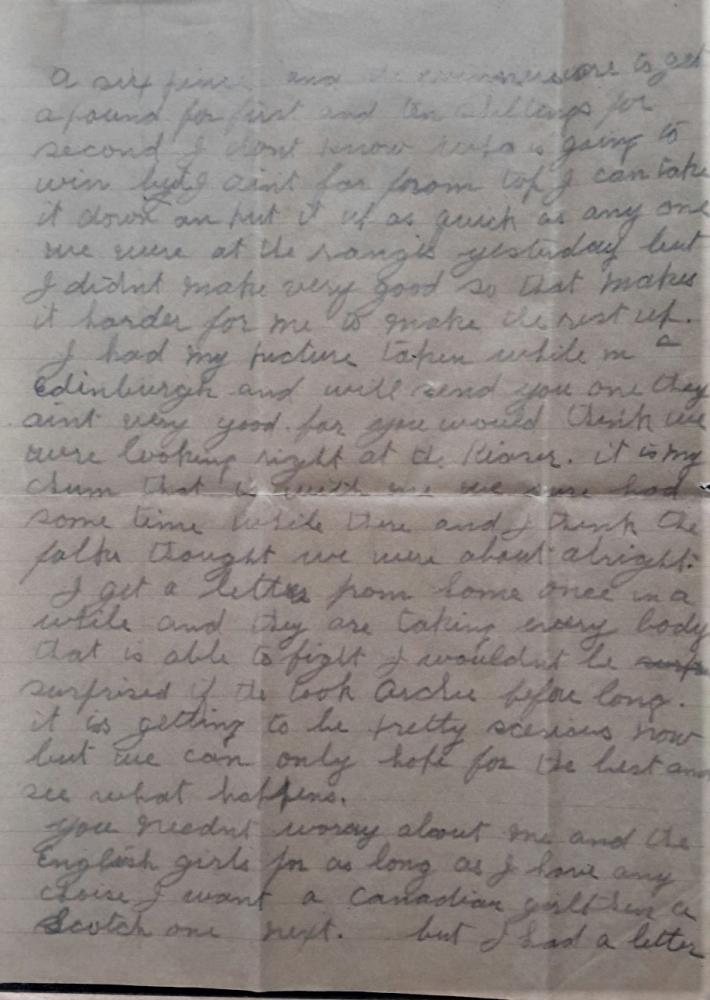 a six pence and the is get
a pound for first and ten shillings for
second I dont know who is going to
win but I aint far from top I can take
it down an put it up as quick as any one
we were at the ranges yesterday but
I didnt make very good so that makes
it harder for me to make the rest up.
I had my picture taken while in
Edinburgh and will send you one they
aint very good for you would think we
were looking right at the Kiaser. it is my
chum that is with me we sure had
some time while there and I think the
folks thought we were about alright.
I get a letter from home once in a
while and they are taking every body
that is able to fight I wouldnt be
surprised if the took Archie before long.
it is getting to be pretty scerious now
but we can only hope for the best and
see what happens.
you neednt woray about me and the
English girls for as long as I have any
choise I want a Canadian girl then a
Scotch one next. but I had a letter